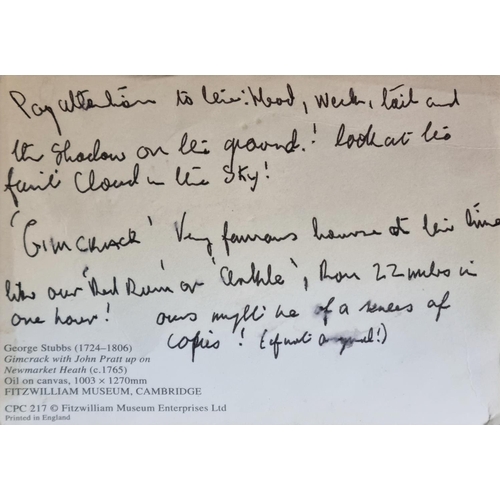 Pay attention to his: Head, Neck, tail and
the Shadow on the ground.! look at the
faint Cloud in the Sky!
'GIMCRACK' Very famous horse at his time
like our 'Red Rum' or 'Arkle', Ran 22 miles in
one hour! ours might be of a series of
copies! (if not a good!)
George Stubbs (1724–1806)
Gimcrack with John Pratt up on
Newmarket Heath (c.1765)
Oil on canvas, 1003 × 1270mm
FITZWILLIAM MUSEUM, CAMBRIDGE
CPC 217 © Fitzwilliam Museum Enterprises Ltd
Printed in England